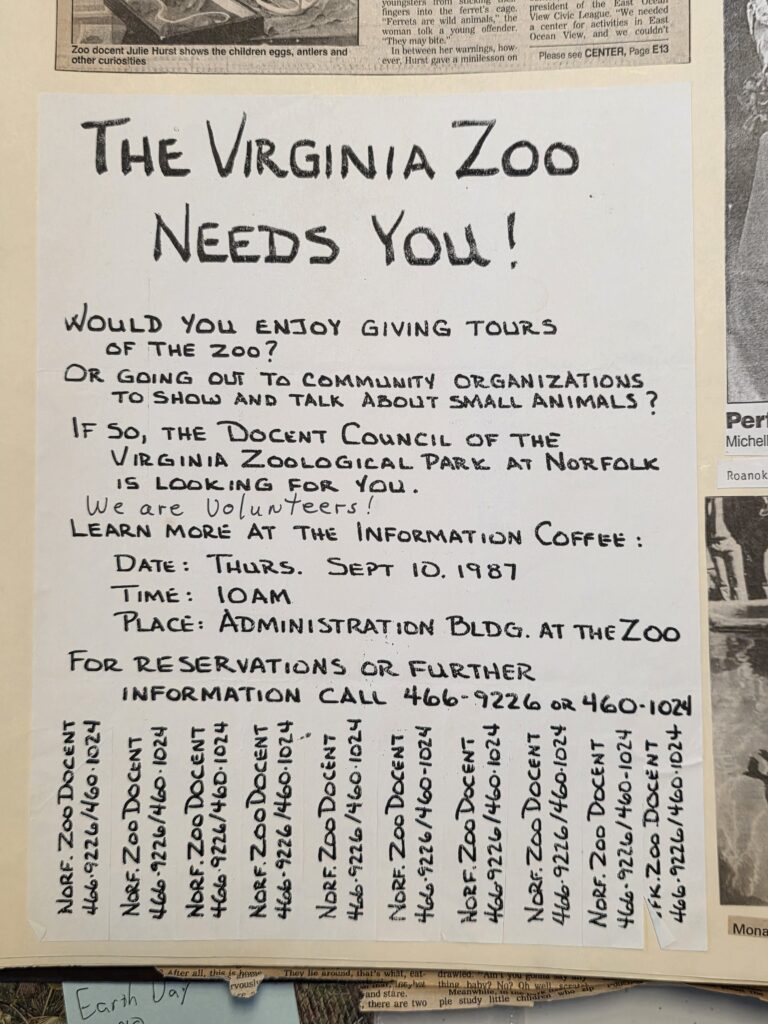 Zoo docent Julie Hurst shows the children eggs, antlers and
other curiosities
fingers into the ferret's cage.
"Ferrets are wild animals," the
woman told a young offender.
"They may bite."
In between her warnings, how-
ever, Hurst gave a minilesson on
president of the East Ocean
View Civic League. "We needed
a center for activities in East
Ocean View, and we couldn't
Please see CENTER, Page E13
THE VIRGINIA ZOO
NEEDS YOU!
WOULD YOU ENJOY GIVING TOURS
OF THE ZOO?
OR GOING OUT TO COMMUNITY ORGANIZATIONS
TO SHOW AND TALK ABOUT SMALL ANIMALS?
IF SO, THE DOCENT COUNCIL OF THE
VIRGINIA ZOOLOGICAL PARK AT NORFOLK
IS LOOKING FOR YOU.
We are Volunteers!
LEARN MORE AT THE INFORMATION COFFEE:
DATE: THURS. SEPT 10. 1987
TIME: 10AM
PLACE: ADMINISTRATION BLDG. AT THE ZOO
FOR RESERVATIONS OR FURTHER
INFORMATION CALL 466-9226 OR 460-1024
NORF. ZOO DOCENT
466-9226/460-1024
NORF. ZOO DOCENT
466-9226/460-1024
NORF. ZOO DOCENT
466-9226/460-1024
NORF. ZOO DOCENT
466-9226/460-1024
NORF. ZOO DOCENT
466-9226/460-1024
NORF. ZOO DOCENT
466-9226/460-1024
NORF. ZOO DOCENT
466-9226/460-1024
NORF. ZOO DOCENT
466-9226/460-1024
NORF. ZOO DOCENT
466-9226/460-1024
FK. ZOO DOCENT
466-9226/460-1024
Perf
Michell
Roanok
Mona
After all, this is home
rvously
They lie around, that's what, eat-
and stare.
there are two
drawled. "Ain't you gonna
thing baby? No? Oh well
Meanwhile,
ple study little children
Earth Day